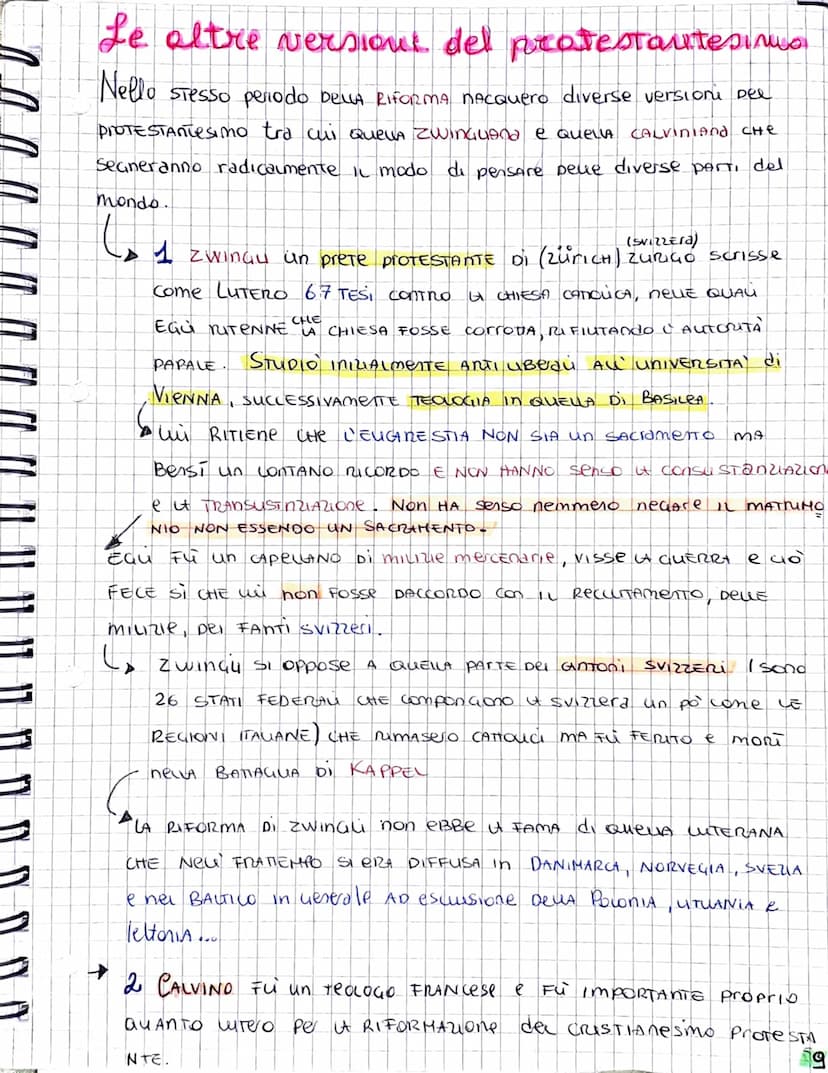 Le altre versioni del protestantesimo
Nello STESSO periodo DELLA RIFORMA nacquero diverse versioni DEL
PROTESTANTESIMO tra cui quella ZWINGLIANA e quella CALVINIANA CHE
segneranno radicalmente IL modo di pensare nelle diverse parti del
mondo.
(SVIZZERA)
1 ZWINGLI un PRETE PROTESTANTE DI (ZÜRICH) ZURIGO scrisse
come LUTERO 67 TESI CONTRO LA CHIESA CATTOLICA, NELLE QUALI
EGLI RITENNE CHE LA CHIESA FOSSE CORROTTA, RIFIUTANDO L'AUTORITÀ
PAPALE. STUDIÒ INIZIALMENTE ARTI LIBERALI ALL'UNIVERSITA' di
VIENNA, SUCCESSIVAMENTE TEOLOGIA IN QUELLA DI BASILEA.
LUI RITIENE CHE L'EUCARESTIA NON SIA un SACRAMENTO MA
BENSÌ UN LONTANO RICORDO E NON HANNO senso LA CONSUSTANZIAZION
e LA TRANSUSTANZIAZIONE. NON HA senso nemmeno negare IL MATRIMO
NIO NON ESSENDO UN SACRAMENTO.
EGLI FÙ UN CAPELLANO DI MILIZIE mercenarie, VISSE LA GUERRA e CIÒ
FECE SÌ CHE LUI non FOSSE DACCORDO CON IL RECLUTAMENTO, DELLE
MILIZIE, DEI FANTI SVIZZERI.
ZWINGLI SI OPPOSE A QUELLA PARTE DEI CANTONI SVIZZERI (sono
26 STATI FEDERALI CHE compongono LA SVIZZERA un pò come LE
REGIONI ITALIANE) CHE RIMASERO CATTOLICI MA FÙ FERITO e MORÌ
nella BATTAGLIA DI KAPPEL
LA RIFORMA DI ZWINGLI non EBBE LA FAMA di quella LUTERANA
CHE NELL'FRATTEMPO SI ERA DIFFUSA in DANIMARCA, NORVEGIA, SVEZIA
e nel BALTICO in generale AD esclusione DELLA POLONIA, LITUANIA e
lettonia...
2 CALVINO FÙ un TEOLOGO FRANCESE e FÙ IMPORTANTE proprio
QUANTO LUTERO PER LA RIFORMAZIONE del CRISTIANESIMO PROTESTA
NTE.